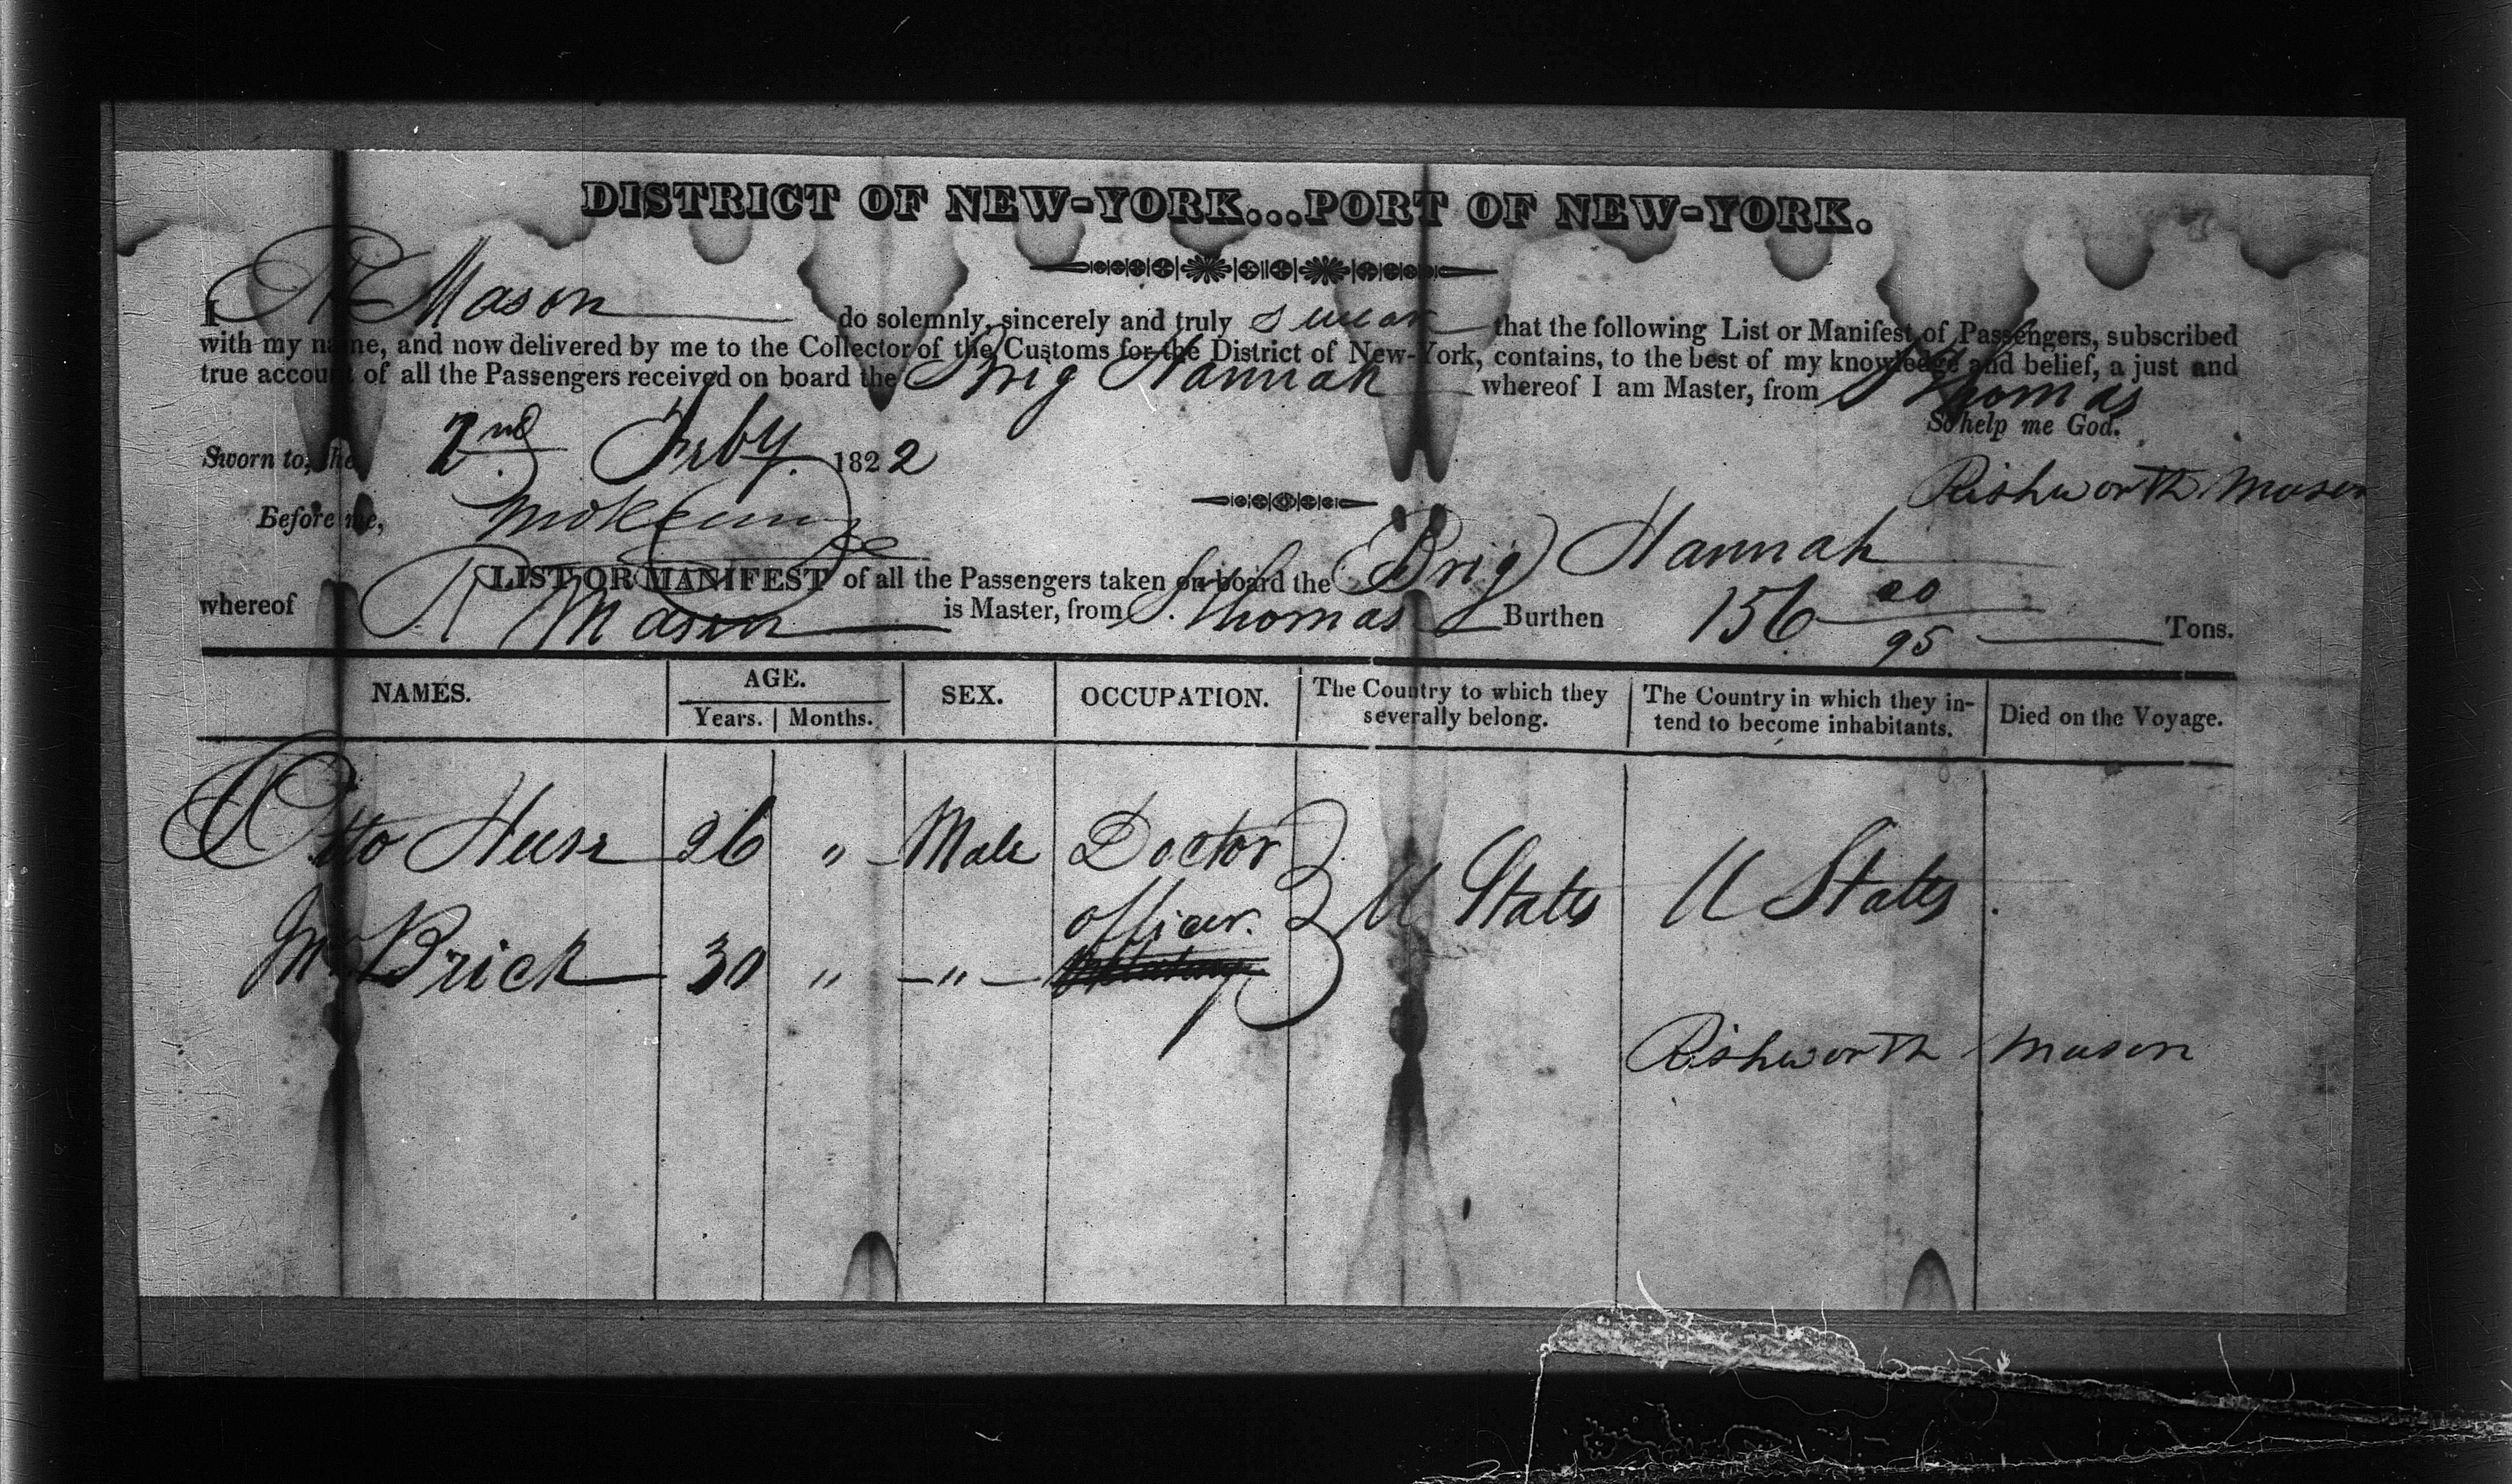 DISTRICT OF NEW-YORK...PORT OF NEW-YORK.
I R Mason do solemnly, sincerely and truly swear that the following List or Manifest of Passengers, subscribed
with my name, and now delivered by me to the Collector of the Customs for the District of New-York, contains, to the best of my knowledge and belief, a just and
true account of all the Passengers received on board the Brig Hannah whereof I am Master, from St Thomas
So help me God.
Sworn to, the 2nd Feby 1822
Rishworth Mason
Before me,
LIST OR MANIFEST of all the Passengers taken on board the Brig Hannah
whereof R Mason is Master, from St Thomas Burthen 156 20/95 Tons.
NAMES. AGE. SEX. OCCUPATION. The Country to which they severally belong. The Country in which they intend to become inhabitants. Died on the Voyage.
Years. Months.
Otto Huse 26 " Male Doctor
U States U States
officer.
Mr Brick 30 " "
Rishworth Mason